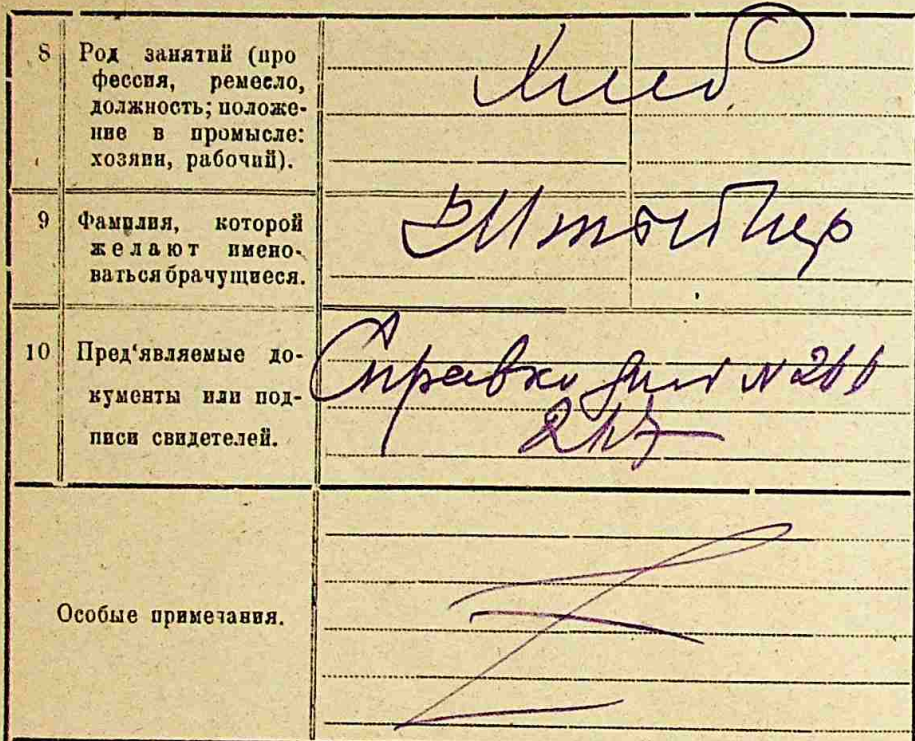 8 Род занятий (про
фессия, ремесло,
должность; положе-
ние в промысле:
хозяин, рабочий).
Хлеб
9 Фамилия, которой
желают имено-
ваться брачущиеся.
10 Пред'являемые до-
кументы или под-
писи свидетелей.
Справки
217
Особые примечания.